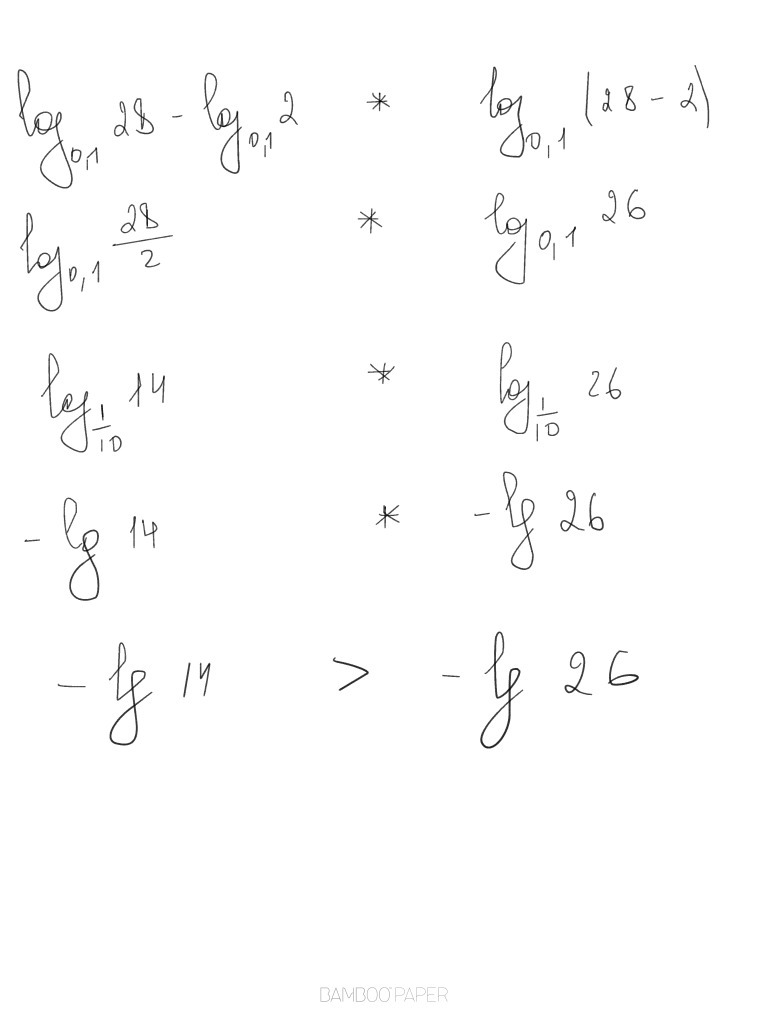 log_{0,1} 28 - log_{0,1} 2 * log_{0,1} (28 - 2)
log_{0,1} \frac{28}{2} * log_{0,1} 26
log_{\frac{1}{10}} 14 * log_{\frac{1}{10}} 26
- lg 14 * - lg 26
- lg 14 > - lg 26
BAMBOO PAPER